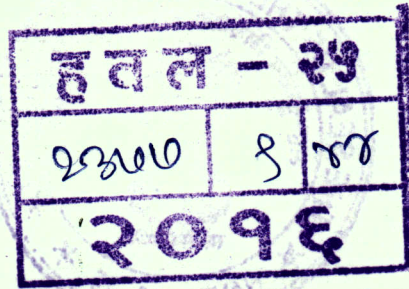 हवल - २५
२३७७ १ ४४
२०१६